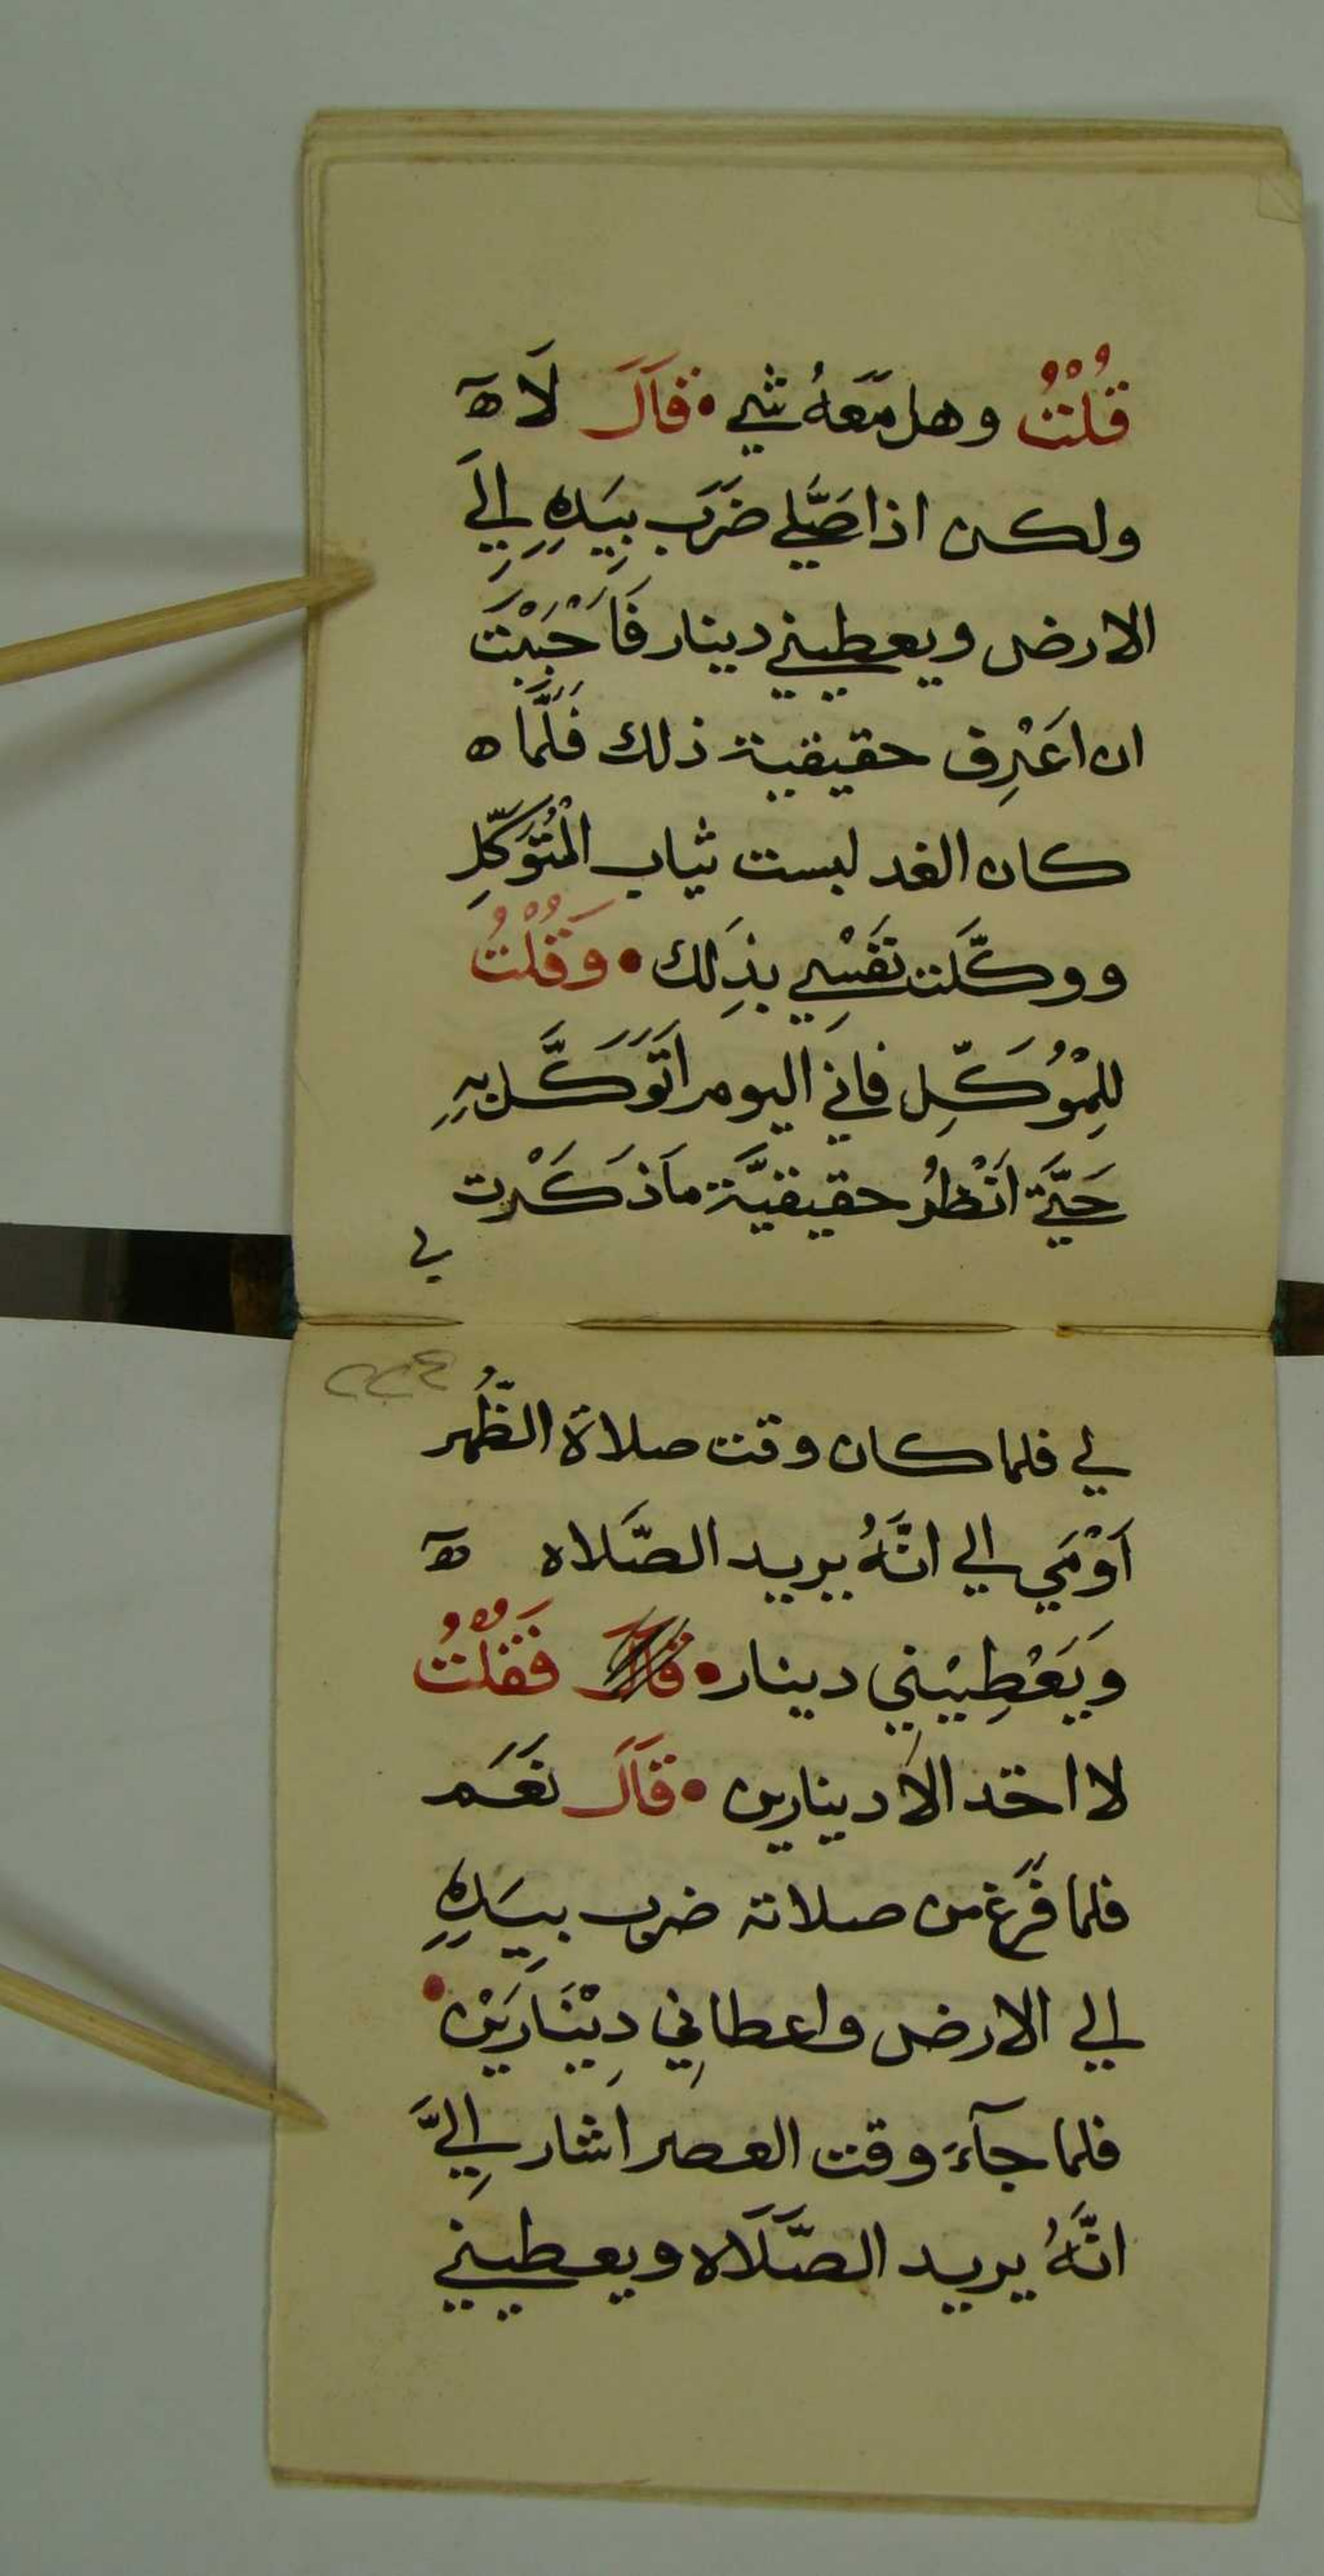 قُلْتُ وهل مَعَهُ شي • قَالَ لَا ه
ولكن اذا صَلّي ضَرَبَ بِيَدِهِ اِلَي
الارض ويعطيني دينار فَاَحْبَبْتَ
ان اعْرِف حقيقية ذلك فَلَمَّا ه
كان الغد لبست ثياب الْمُتْوَكّلِ
ووكَّلت نَفْسِي بذَلِك • وَقُلْتُ
لِلمُوْكّلِ فاني اليوم اَتَوَكَّل بِهِ
حَتَّي اَنْظُرُ حقيقيَّة ماذَكَرْت
لي
٢٢٤
لي فلما كان وقت صلاة الظُّهر
اَوْمَي الي انَّهُ يريد الصَّلاه ه
وَيَعْطِيْني دينار • قال فَقُلْتُ
لا اخد الا دينارين • قَالَ نَعَم
فلما فَرَغ من صلاته ضرب بِيَدِهِ
الي الارض واعطاني دِيْنَارَيْن •
فلما جآءَ وقت العصر اشار اِليَّ
انَّهُ يريد الصَّلَاه ويعطيني